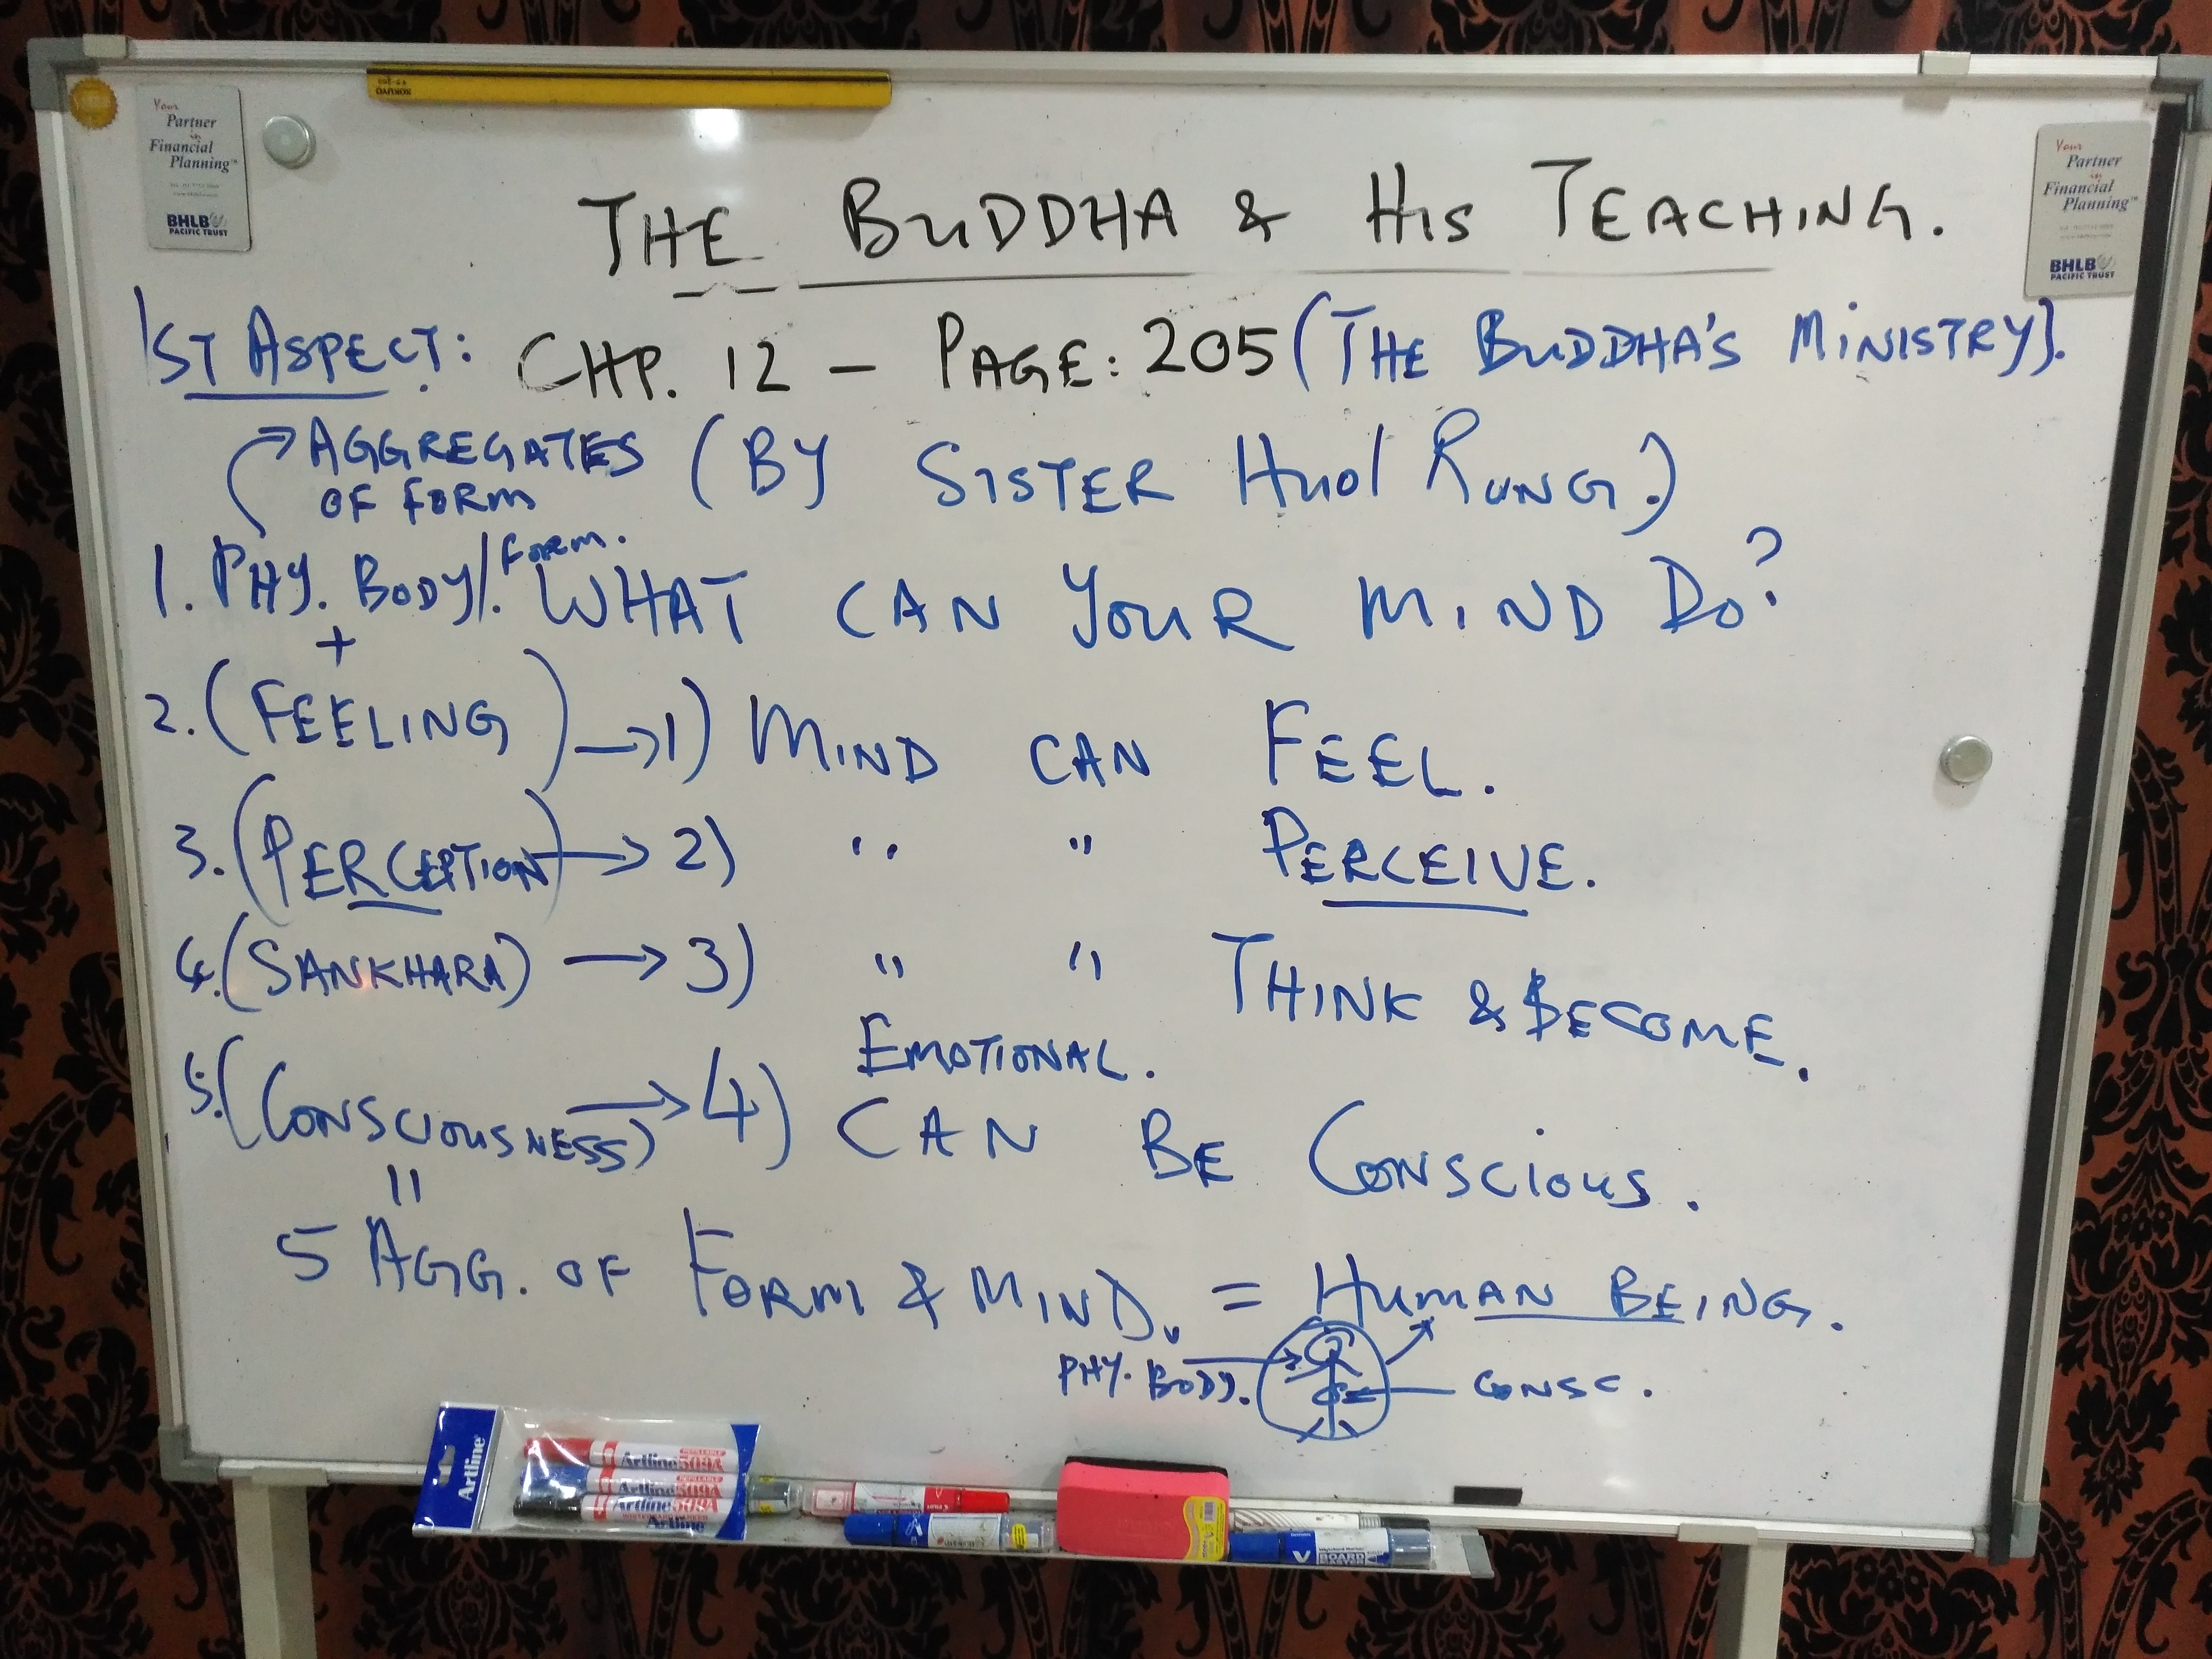 Your
Partner
in
Financial
Planning™
BHLB
PACIFIC TRUST
Your
Partner
in
Financial
Planning™
BHLB
PACIFIC TRUST
THE BUDDHA & HIS TEACHING.
1ST ASPECT: CHP. 12 – PAGE: 205 (THE BUDDHA'S MINISTRY).
AGGREGATES OF FORM (BY SISTER HUOI RUNG.)
1. PHY. BODY/Form. WHAT CAN YOUR MIND DO?
+
2. (FEELING) → 1) MIND CAN FEEL.
3. (PERCEPTION) → 2) " " PERCEIVE.
4. (SANKHARA) → 3) " " THINK & BECOME.
EMOTIONAL.
5. (CONSCIOUSNESS) → 4) CAN BE CONSCIOUS.
=
5 AGG. OF FORM & MIND. = HUMAN BEING.
PHY. BODY. CONSC.
Artline
Artline 509A
Artline 509A
Artline 509A
Artline
V BOARD MASTER